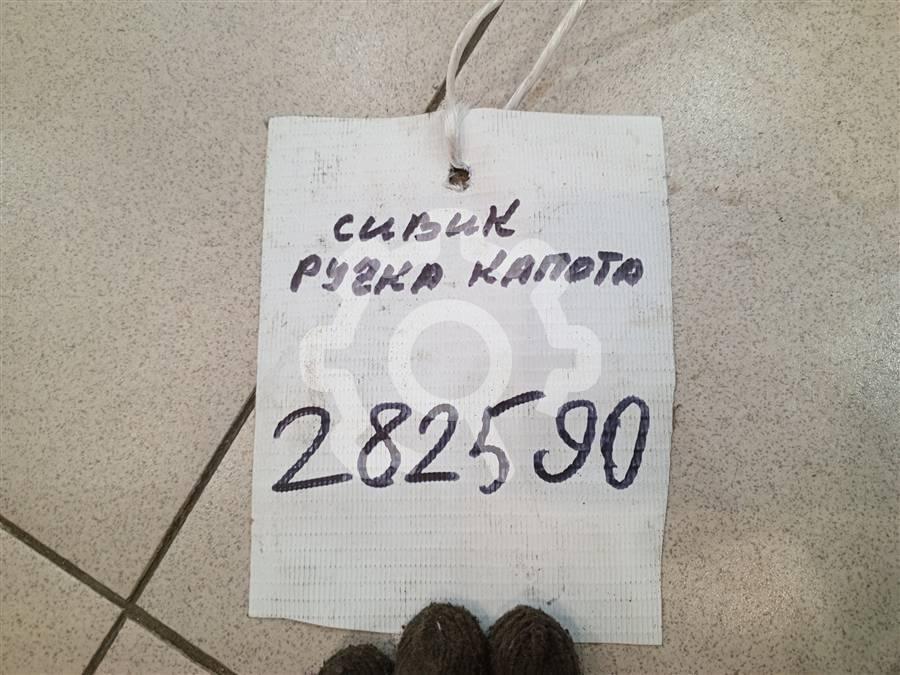 СИВИК
РУЧКА КАПОТА
282590